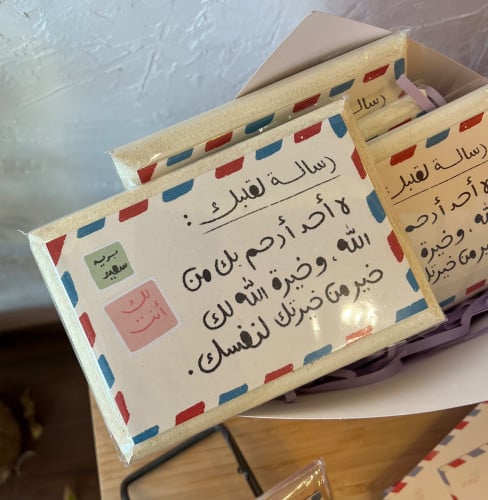 رسالة لقلبك :
لا أحد أرحم بك من
الله، وخيرة الله لك
خير من خيرتك لنفسك.
بريد
سعيد
لك
أنت
رسالة
رسالة لقلبك :
لا أحد أرحم
الله، وخيرة
خير من خيرتك